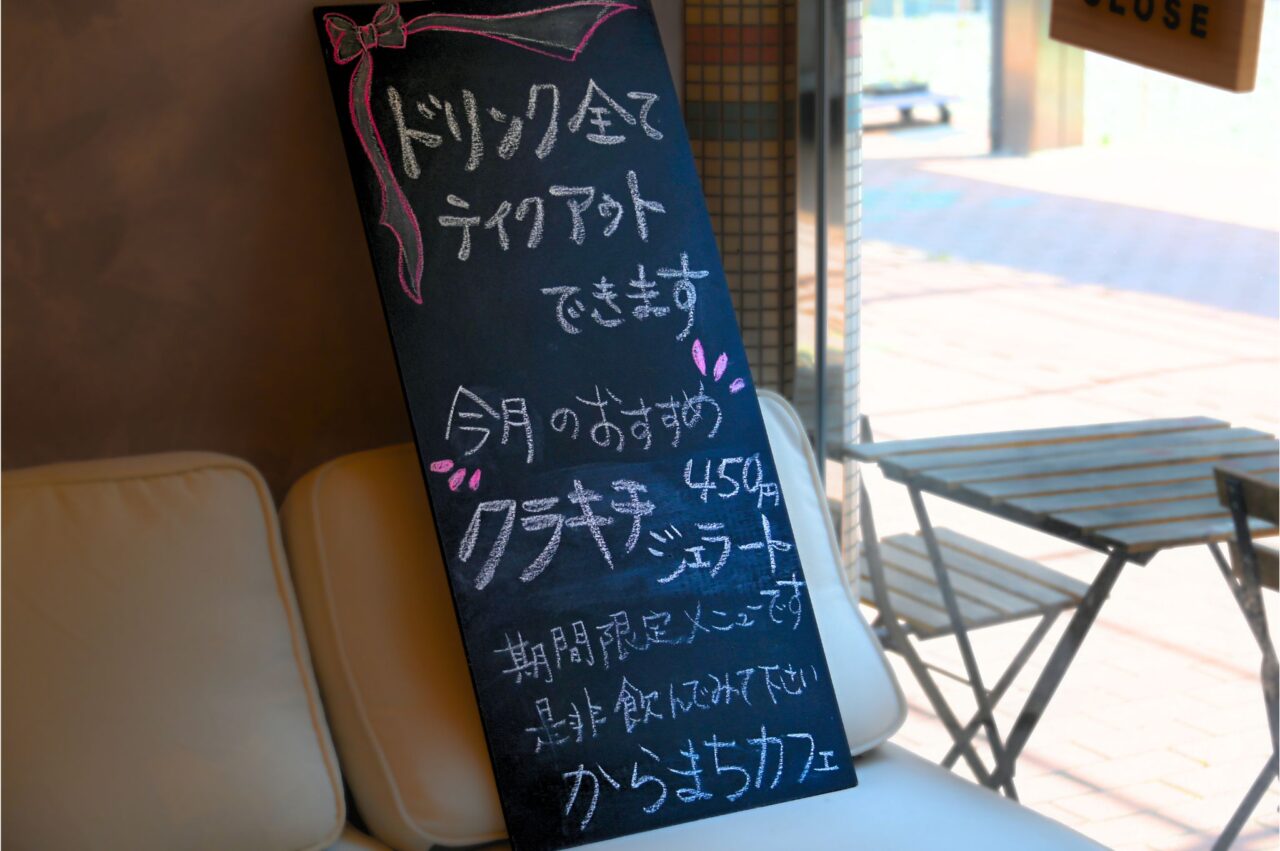 CLOSE
ドリンク全て
テイクアウト
できます
今月のおすすめ
クラキチ 450円
ジェラート
期間限定メニューです
是非飲んでみて下さい
からまちカフェ